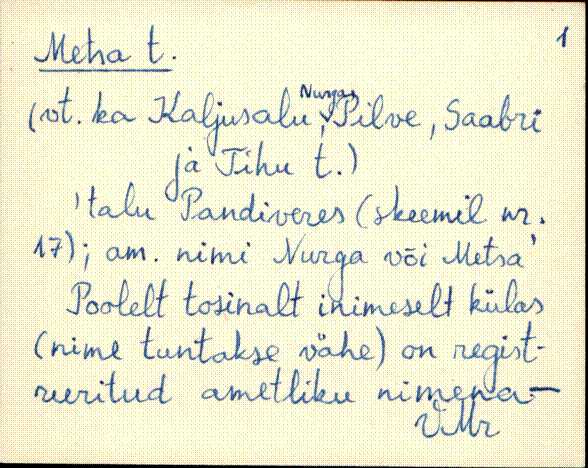 1
Metsa t.
(vt. ka Kaljusalu, Nurgas, Pilve, Saabri
ja Tihu t.)
'talu Pandiveres (skeemil nr.
17); am. nimi Nurga või Metsa'
Poolelt tosinalt inimeselt külas
(nime tuntakse vähe) on regist-
reeritud ametliku nimena —
VMr